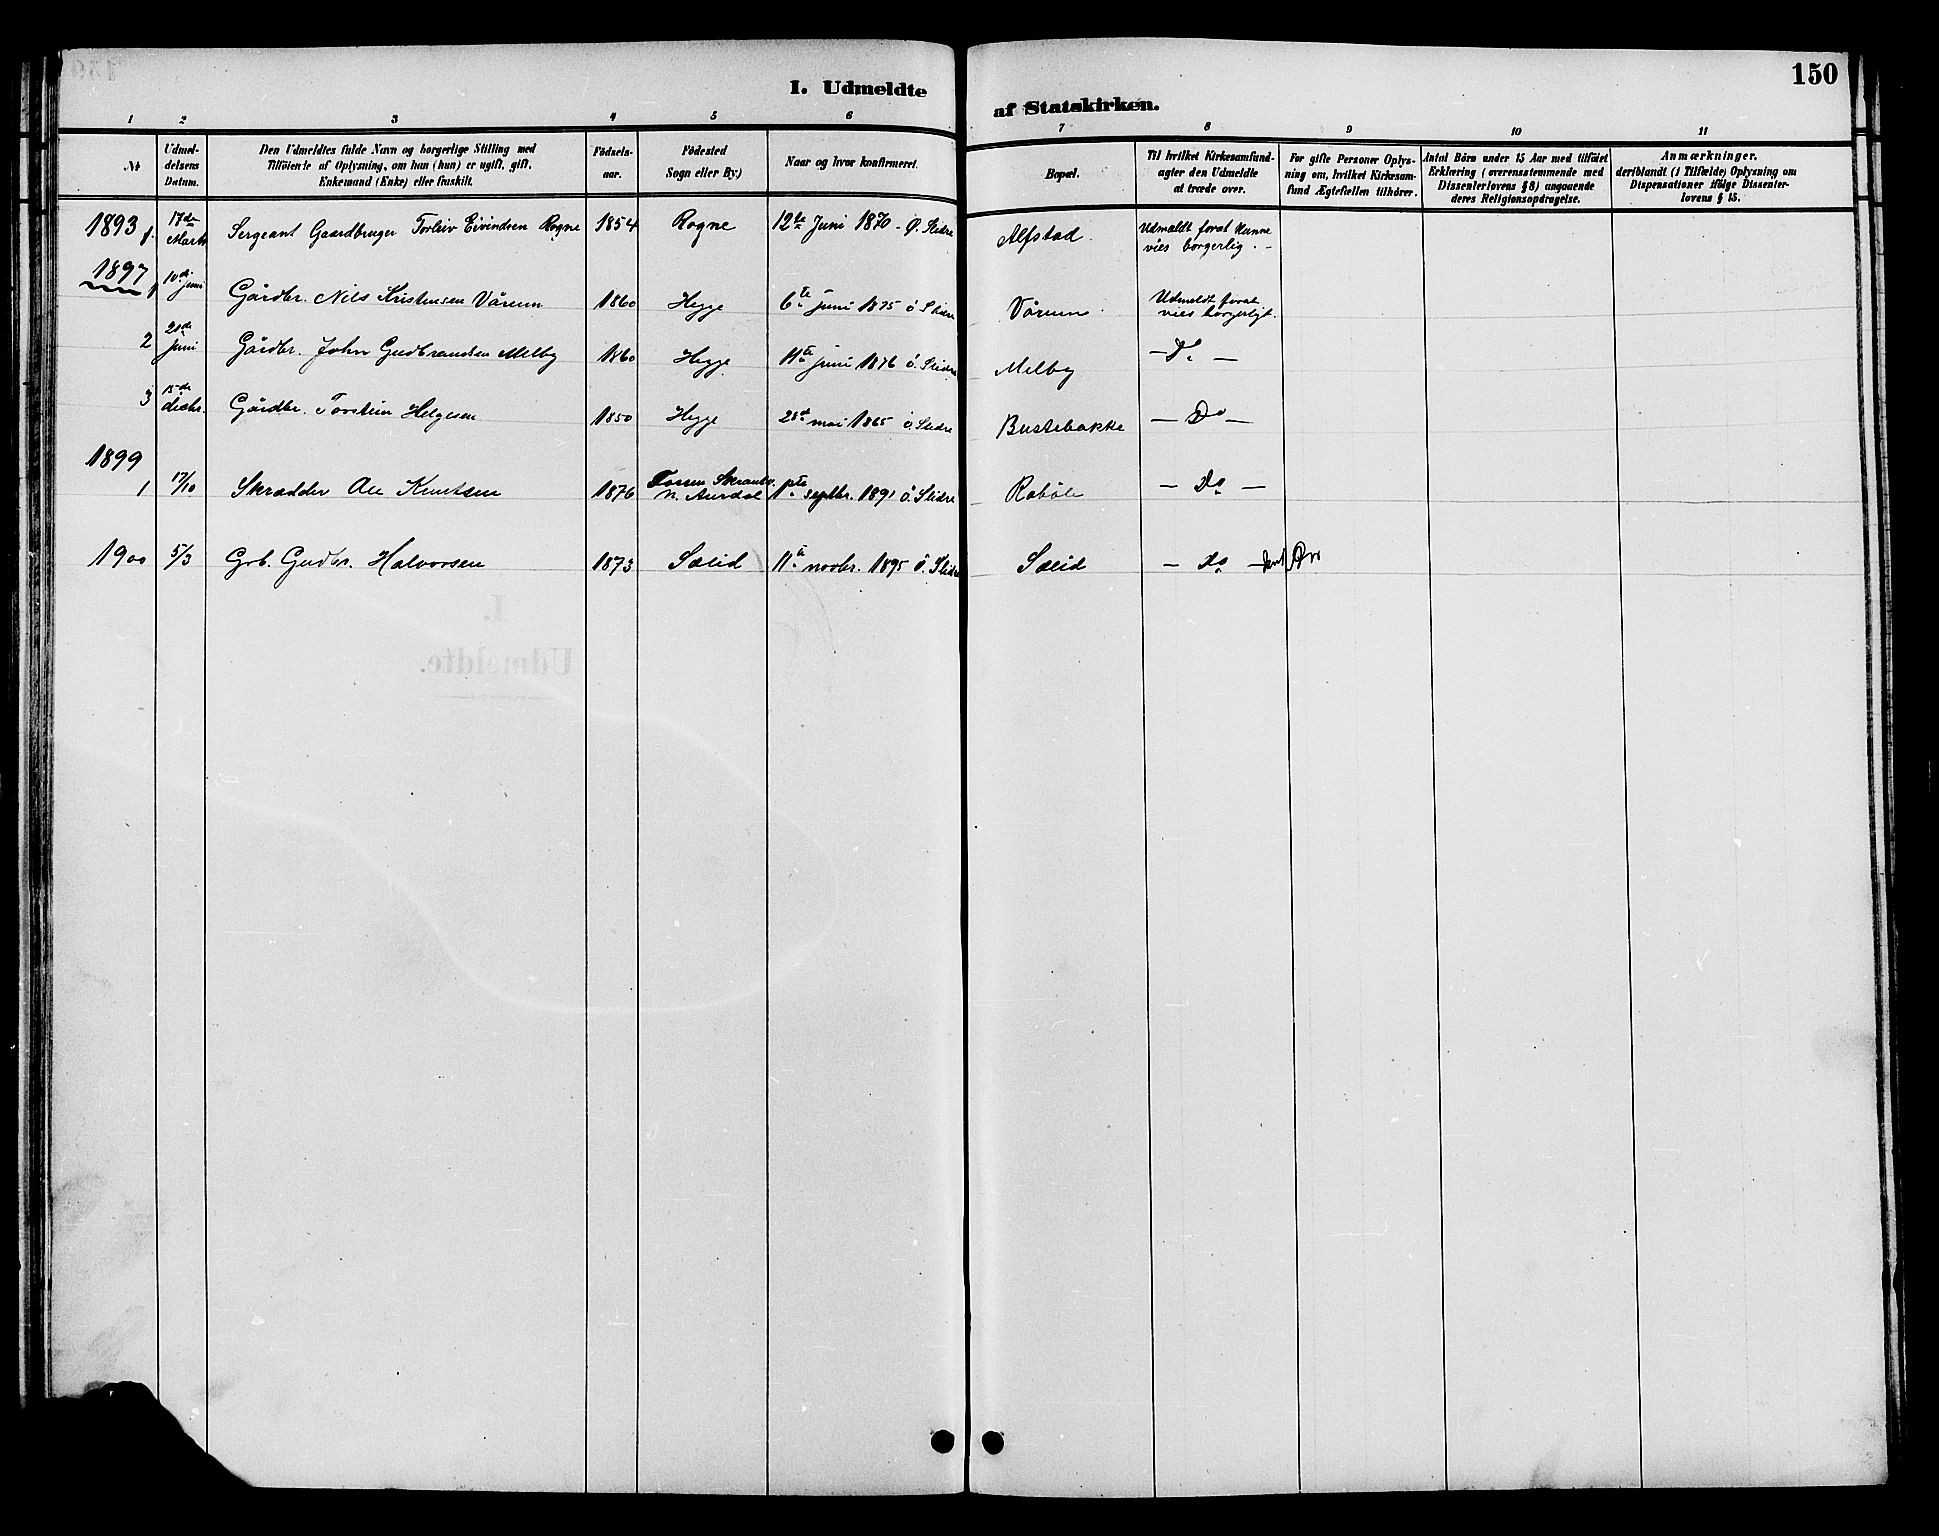 150
I. Udmeldte af Statskirken.
1 2 3 4 5 6 7 8 9 10 11
№
Udmel-
delsens
Datum.
Den Udmeldtes fulde Navn og borgerlige Stilling med
Tilföiende af Oplysning, om han (hun) er ugift, gift,
Enkemand (Enke) eller fraskilt.
Födsels-
aar.
Födested
Sogn eller By)
Naar og hvor konfirmeret.
Bopæl.
Til hvilket Kirkesamfund-
agter den Udmeldte
at træde over.
For gifte Personer Oplys-
ning om, hvilket Kirkesam-
fund Ægtefællen tilhörer.
Antal Börn under 15 Aar med tilföiet
Erklæring (overensstemmende med
Dissenterlovens § 8) angaaende
deres Religionsopdragelse.
Anmærkninger.
deriblandt (i Tilfælde) Oplysning om
Dispensationer ifölge Dissenter-
lovens § 15.
1893 1. 17de Marts Sergeant Gaardbruger Torleiv Eivindsen Rogne 1854 Rogne 12te Juni 1870 - Ø. Slidre Alfstad. Udmeldt forat kunne
vies borgerlig. -
1897
1 10de juni Gårdbr. Nils Kristensen Vårum 1860 Hegge 6te juni 1875 ö Slidre Vårum Udmeldt forat
vies borgerligt.
2 20de juni Gårdbr. John Gudbrandsen Melby 1860 Hegge 11te juni 1876 ö. Slidre Melby - Do -
3 15de decbr. Gårdbr. Torstein Helgesen 1850 Hegge 28de mai 1865 ö. Slidre Bustebakke - Do -
1899
1 17/10 Skrædder Knutsen 1876 N. Aurdal 1ste septbr. 1891 ö Slidre Robøle - Do -
1900 5/3 Grb. Gudbr. Halvorsen 1873 Sælid 11te novbr. 1895 ö. Slidre Sælid - Do -
I.
Udmeldte.